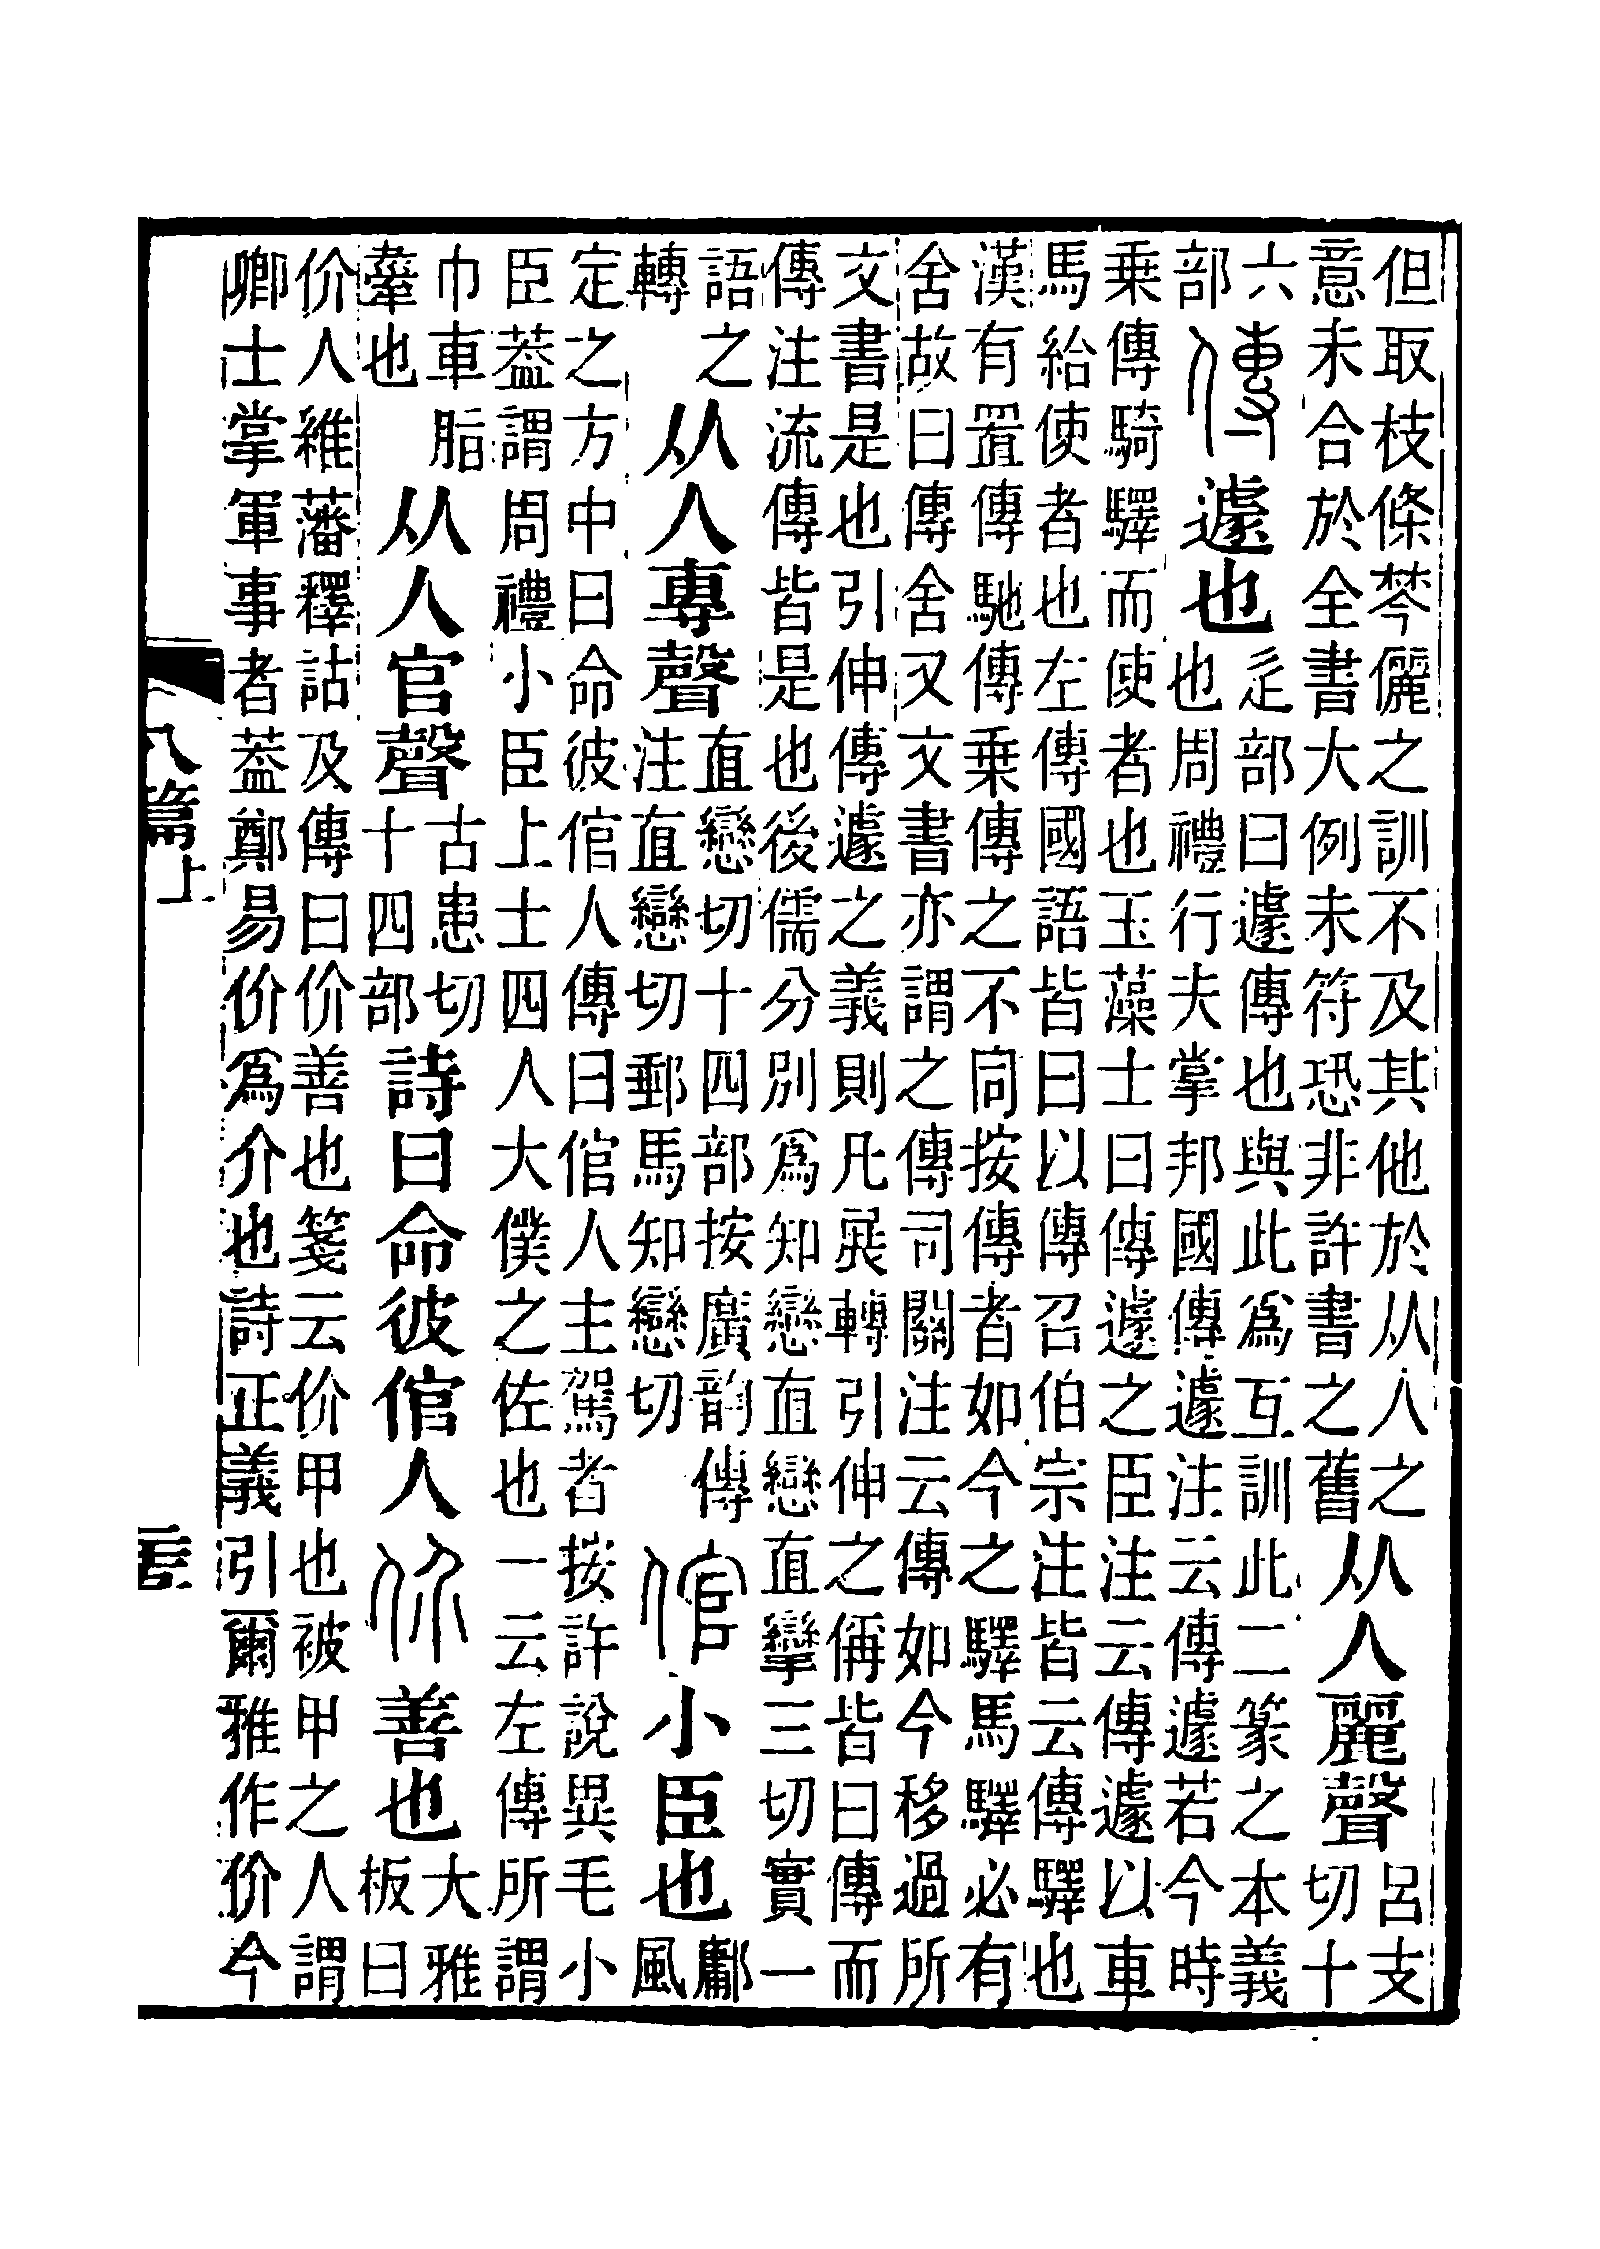 但取枝條棽儷之訓不及其他於从人之
意未合於全書大例未符恐非許書之舊
从人麗聲
呂支
切十
六
部
傳
遽也
辵部曰遽傳也與此爲互訓此二篆之本義
也周禮行夫掌邦國傳遽注云傳遽若今時
乗傳騎驛而使者也玉藻士曰傳遽之臣注云傳遽以車
馬給使者也左傳國語皆曰以傳召伯宗注皆云傳驛也
漢有置傳馳傳乗傳之不同按傳者如今之驛馬驛必有
舍故曰傳舍又文書亦謂之傳司關注云傳如今移過所
文書是也引伸傳遽之義則凡展轉引伸之偁皆曰傳而
傳注流傳皆是也後儒分別爲知戀直戀直攣三切實一
語之
轉
从人專聲
直戀切十四部按廣韵傳
注直戀切郵馬知戀切
倌
小臣也
鄘
風
定之方中曰命彼倌人傳曰倌人主駕者按許說異毛小
臣葢謂周禮小臣上士四人大僕之佐也一云左傳所謂
巾車脂
舝也
从人官聲
古患切
十四部
詩曰命彼倌人
价
善也
大雅
板曰
价人維藩釋詁及傳曰价善也箋云价甲也被甲之人謂
卿士掌軍事者葢鄭易价爲介也詩正義引爾雅作价今
八篇上